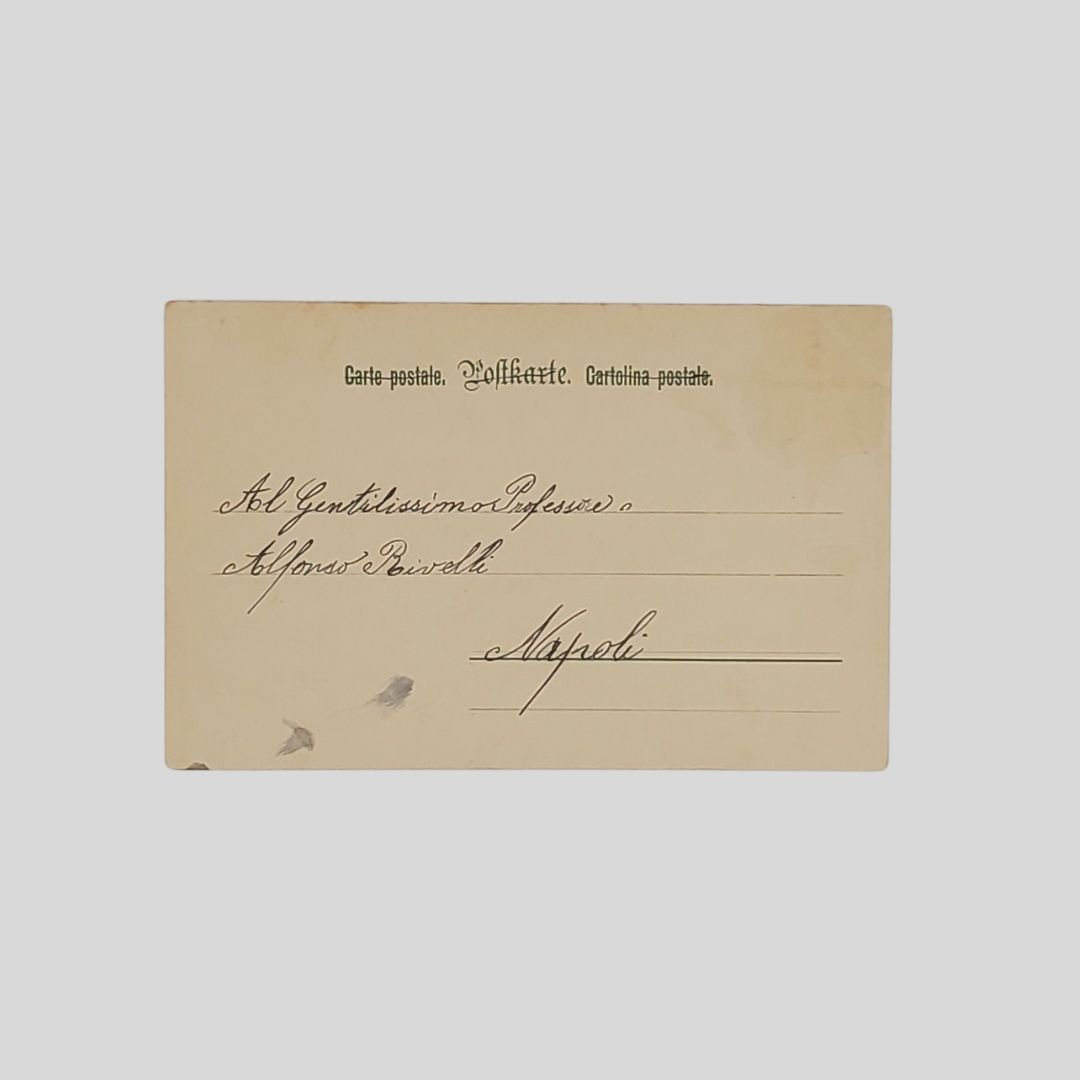 Carte postale. Postkarte. Cartolina postale.
Al Gentilissimo Professore
Alfonso Rivelli
Napoli